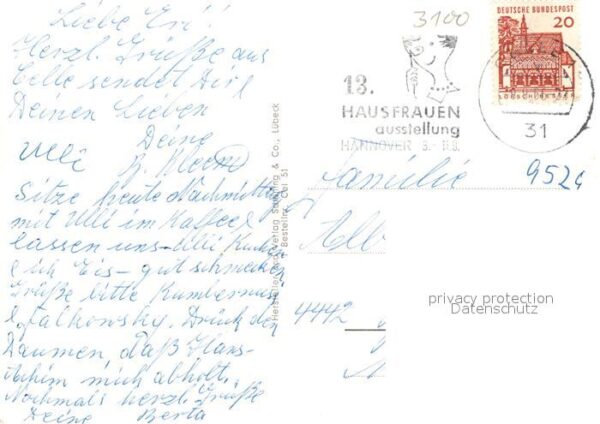 Liebe Eri!
Herzl. Grüße aus
Celle sendet Dir u
Deinen Lieben
Deine
Ulli
Sitze heute Nachmittag
mit Ulli im Kaffee u
lassen uns - Ulli Kuchen
u ich Eis - gut schmecken
Grüße bitte
u. Falkowsky. Drück den
Daumen, daß Hans-
Achim mich abholt.
Nochmals herzl. Grüße
Deine Berta
Hersteller und Verlag Schöning & Co., Lübeck
Bestellnr. Cel 51
3100
DEUTSCHE BUNDESPOST
20
LORSCH/HESSEN
13.
HAUSFRAUEN
ausstellung
HANNOVER 3.-11.9.
31
Familie
9524
4442
privacy protection
Datenschutz